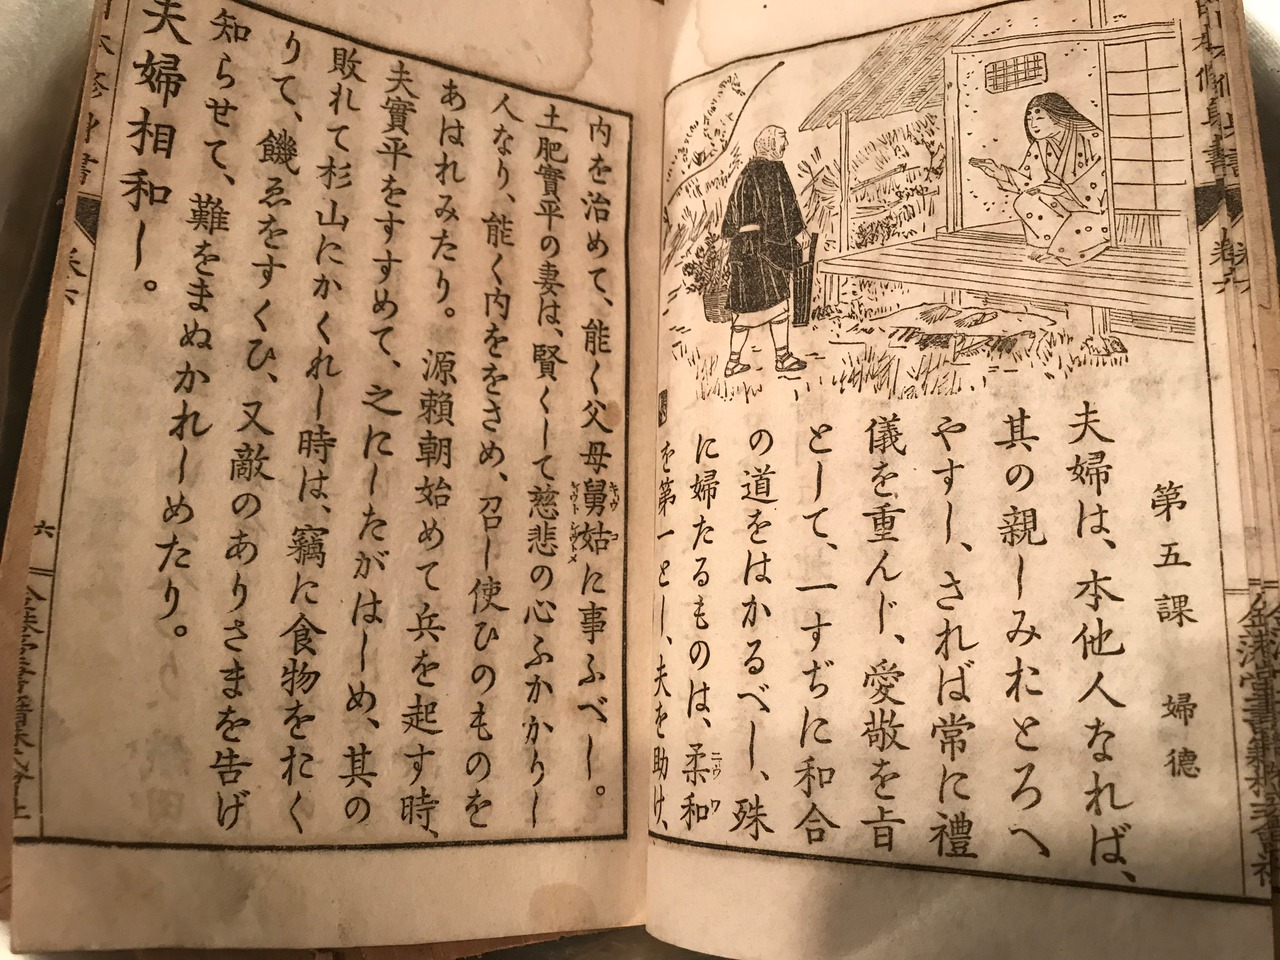 第五課 婦德
夫婦は、本他人なれば、
其の親しみおとろへ
やすし、されば常に禮
儀を重んじ、愛敬を旨
として、一すぢに和合
の道をはかるべし、殊
に婦たるものは、柔和
ニウワ
を第一とし、夫を助け、
内を治めて、能く父母舅姑に事ふべし。
キウコ
シウトシウトメ
土肥實平の妻は、賢くして慈悲の心ふかかりし
人なり、能く内ををさめ、召し使ひのものを
あはれみたり。源賴朝始めて兵を起す時、
夫實平をすすめて、之にしたがはしめ、其の
敗れて杉山にかくれし時は、竊に食物をおく
りて、饑ゑをすくひ、又敵のありさまを告げ
知らせて、難をまぬかれしめたり。
夫婦相和し。
本修身書
卷六
六